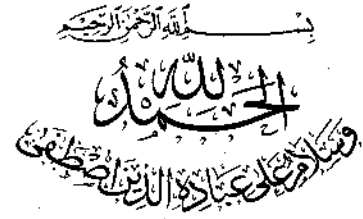 بِسْمِ اللَّهِ الرَّحْمَنِ الرَّحِيمِ
الْحَمْدُ لِلَّهِ
وَسَلَامٌ عَلَى عِبَادِهِ الَّذِينَ اصْطَفَى